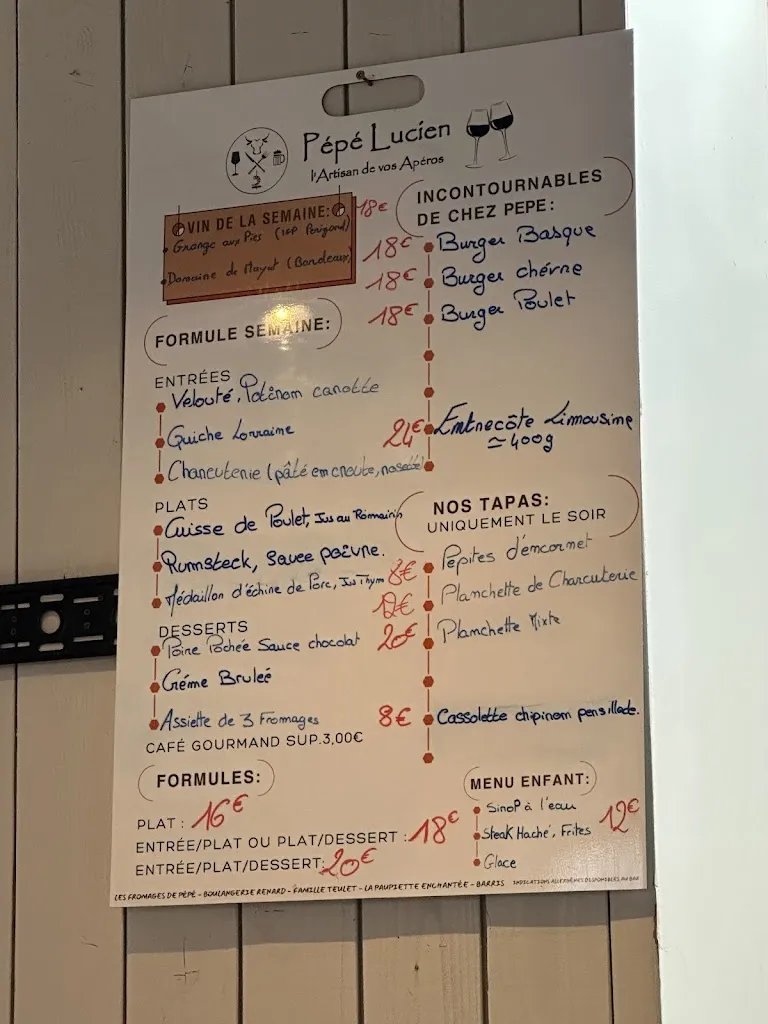 Pépé Lucien
l'Artisan de vos Apéros
VIN DE LA SEMAINE: 18€
Grange aux Pies (IGP Périgord)
Domaine de Mayat (Bordeaux)
FORMULE SEMAINE:
ENTRÉES
Velouté, Potinom canotte
Quiche Lorraine
Charcuterie (pâté em croute, rosette)
PLATS
Cuisse de Poulet, Jus au Romarin
Rumsteck, Sauce poivre.
Médaillon d'échine de Porc, Jus Thym
DESSERTS
Poire Pochée Sauce chocolat
Créme Bruleé
Assiette de 3 Fromages
CAFÉ GOURMAND SUP.3,00€
FORMULES:
PLAT : 16€
ENTRÉE/PLAT OU PLAT/DESSERT : 18€
ENTRÉE/PLAT/DESSERT: 20€
INCONTOURNABLES
DE CHEZ PEPE:
18€ Burger Basque
18€ Burger chévre
18€ Burger Poulet
24€ Entrecôte Limousine
≃ 400g
NOS TAPAS:
UNIQUEMENT LE SOIR
8€ Pépites d'encornet
Planchette de Charcuterie
20€ Planchette Mixte
8€ Cassolette chipiron persillade.
MENU ENFANT:
Sirop à l'eau
Steak Haché, Frites 12€
Glace
LES FROMAGES DE PÉPÉ - BOULANGERIE RENARD - FAMILLE TEULET - LA PAUPIETTE ENCHANTÉE - BARRIS
INDICATIONS ALLERGÈNES DISPONIBLES AU BAR